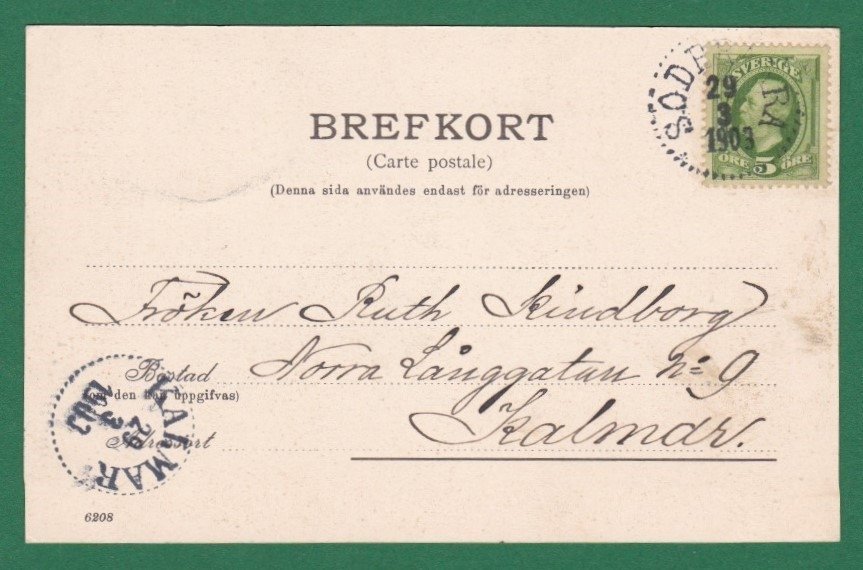 SVERIGE
29
3
1903
ÖRE 5 ÖRE
BREFKORT
(Carte postale)
(Denna sida användes endast för adresseringen)
Fröken Ruth Kindborg
Norra Långgatan No 9
Kalmar.
Bostad
(om den kan uppgifvas)
Adressort
KALMAR
29
3
1903
6208